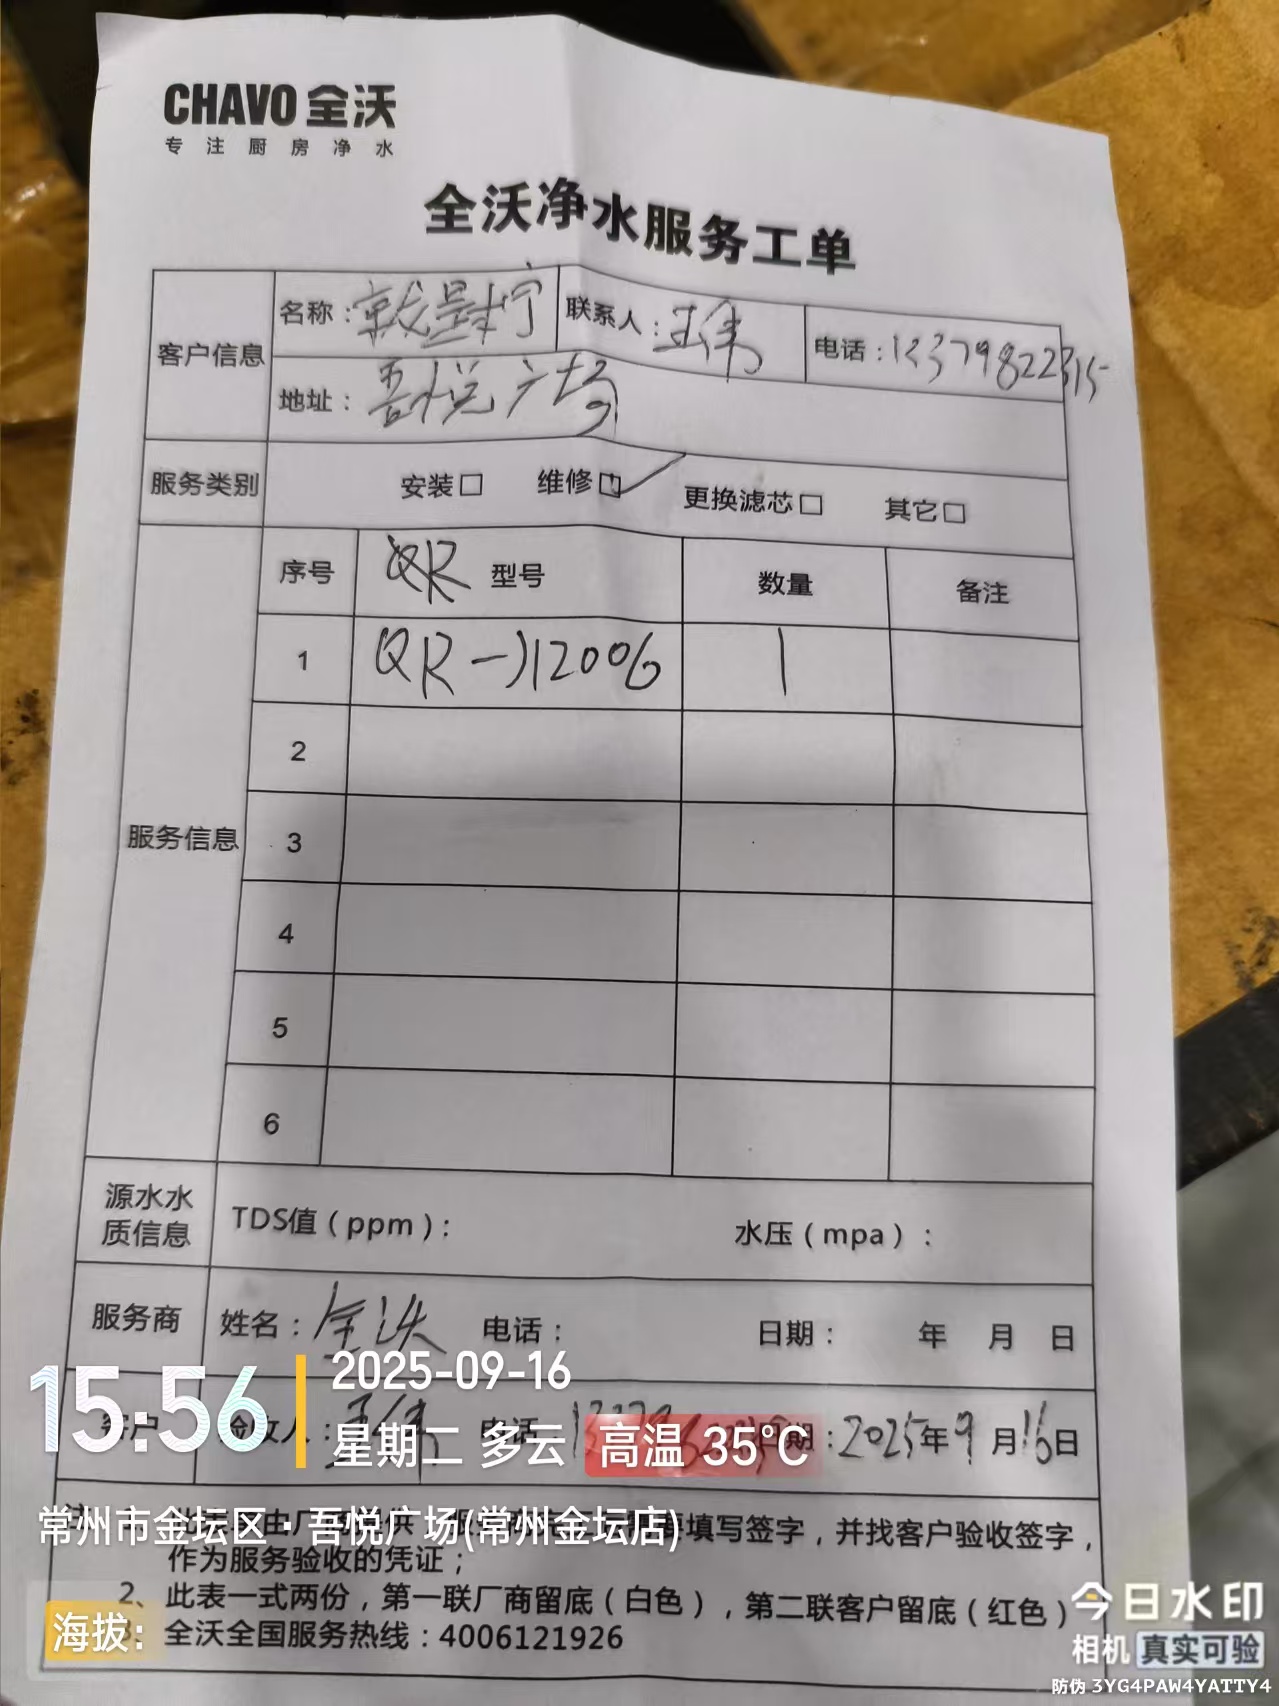 CHAVO 全沃
专注厨房净水
全沃净水服务工单
客户信息
名称：就是柠 联系人：王伟 电话：13379822315
地址：吾悦广场
服务类别 安装□ 维修□✓ 更换滤芯□ 其它□
服务信息
序号 QR 型号 数量 备注
1 QR-J12006 1
2
3
4
5
6
源水水质信息 TDS值（ppm）： 水压（mpa）：
服务商 姓名：全沃 电话： 日期： 年 月 日
客户 验收人：王伟 电话： 日期：2025年9月16日
15:56
2025-09-16
星期二 多云 高温 35°C
常州市金坛区·吾悦广场(常州金坛店)
填写签字，并找客户验收签字，
作为服务验收的凭证；
2、此表一式两份，第一联厂商留底（白色），第二联客户留底（红色）
3、全沃全国服务热线：4006121926
海拔：
今日水印
相机 真实可验
防伪 3YG4PAW4YATTY4